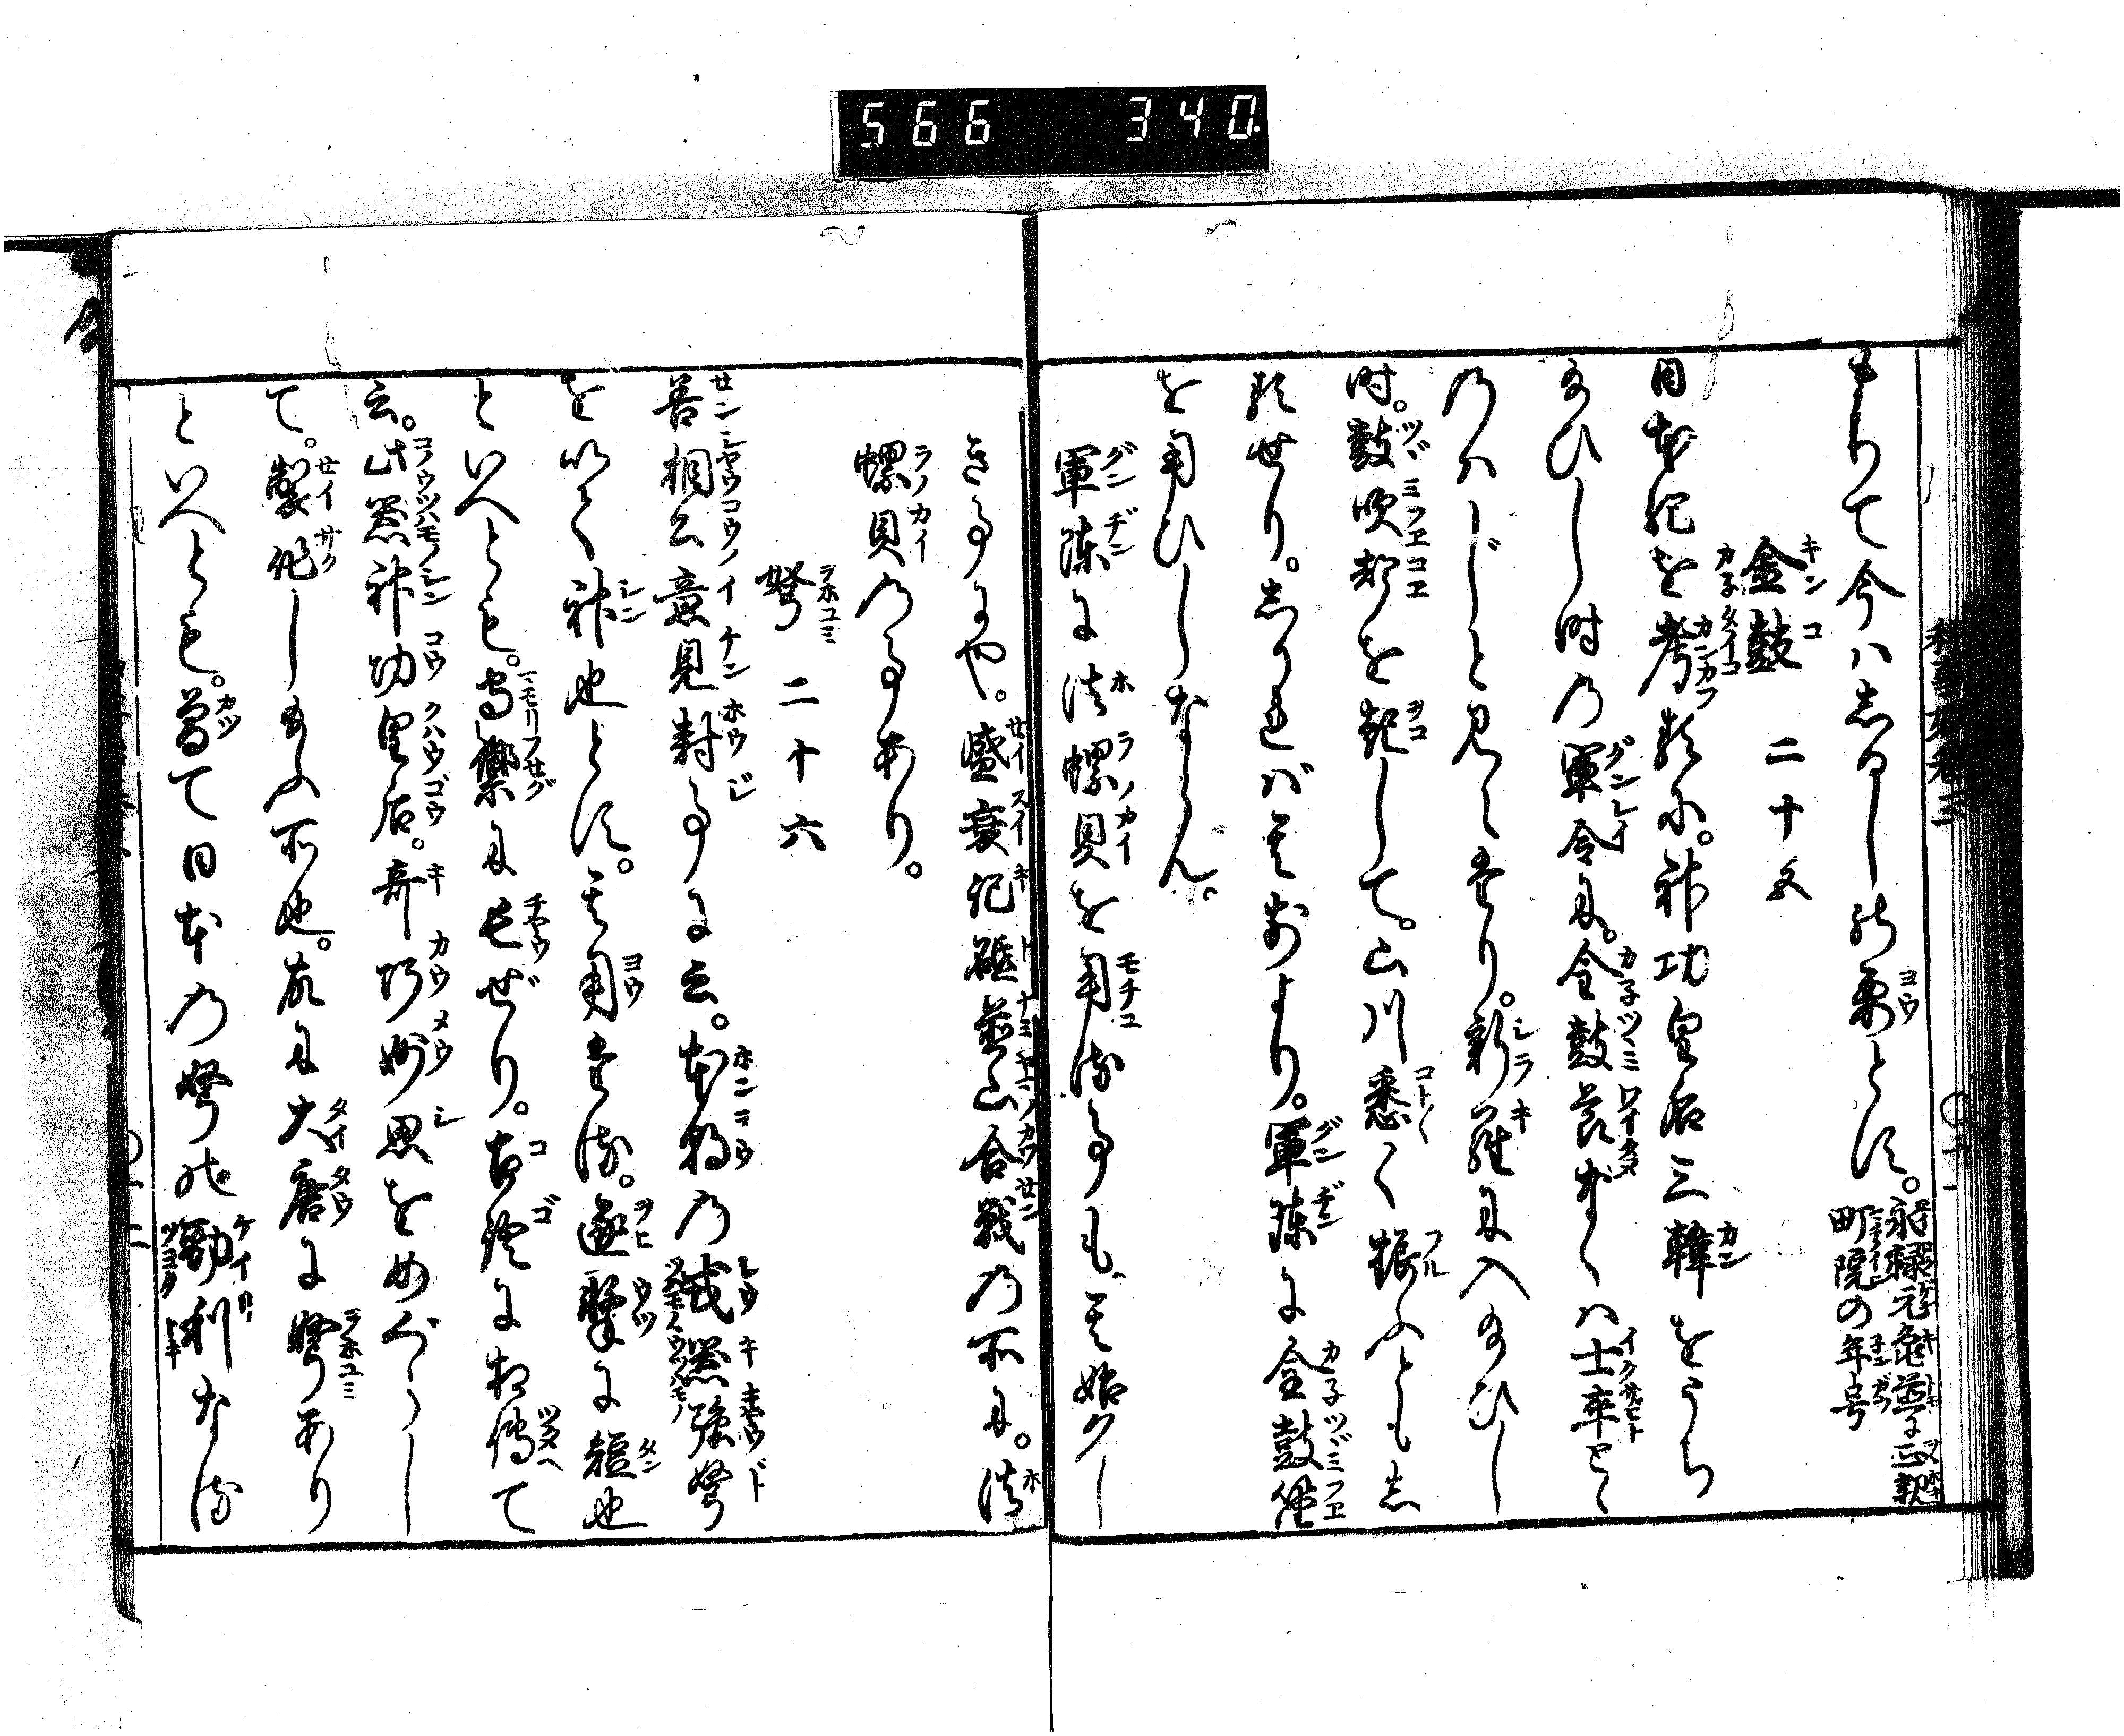 566 340
もりて今ハしるしの要とす。永禄元亀並に正親
町院の年号
金鼓 二十五
日本紀を考ふるに。神功皇后三韓をうち
給ひし時の軍令に。金鼓節なくハ士卒とゝ
のハじと見えたり。新羅に入給ひし
時。鼓吹声を起して。山川悉く振ふともし
るせり。しかれバ其前より。軍陣に金鼓
を用ひしならん。
軍陣に法螺貝を用る事も、其始久し
き事にや。盛衰記礪並山合戦の所に。法
螺貝の事あり。
弩 二十六
善相公意見封事に云。本朝の戎器強弩
を以て神也とす。其用たる。逐撃に短也
といへとも。守禦に長ぜり。古語に相傳て
云。此器神功皇后。奇巧妙思をめぐらし
て。製作し給ふ所也。故に大唐に弩あり
といへとも。曽て日本の弩の勁利なる